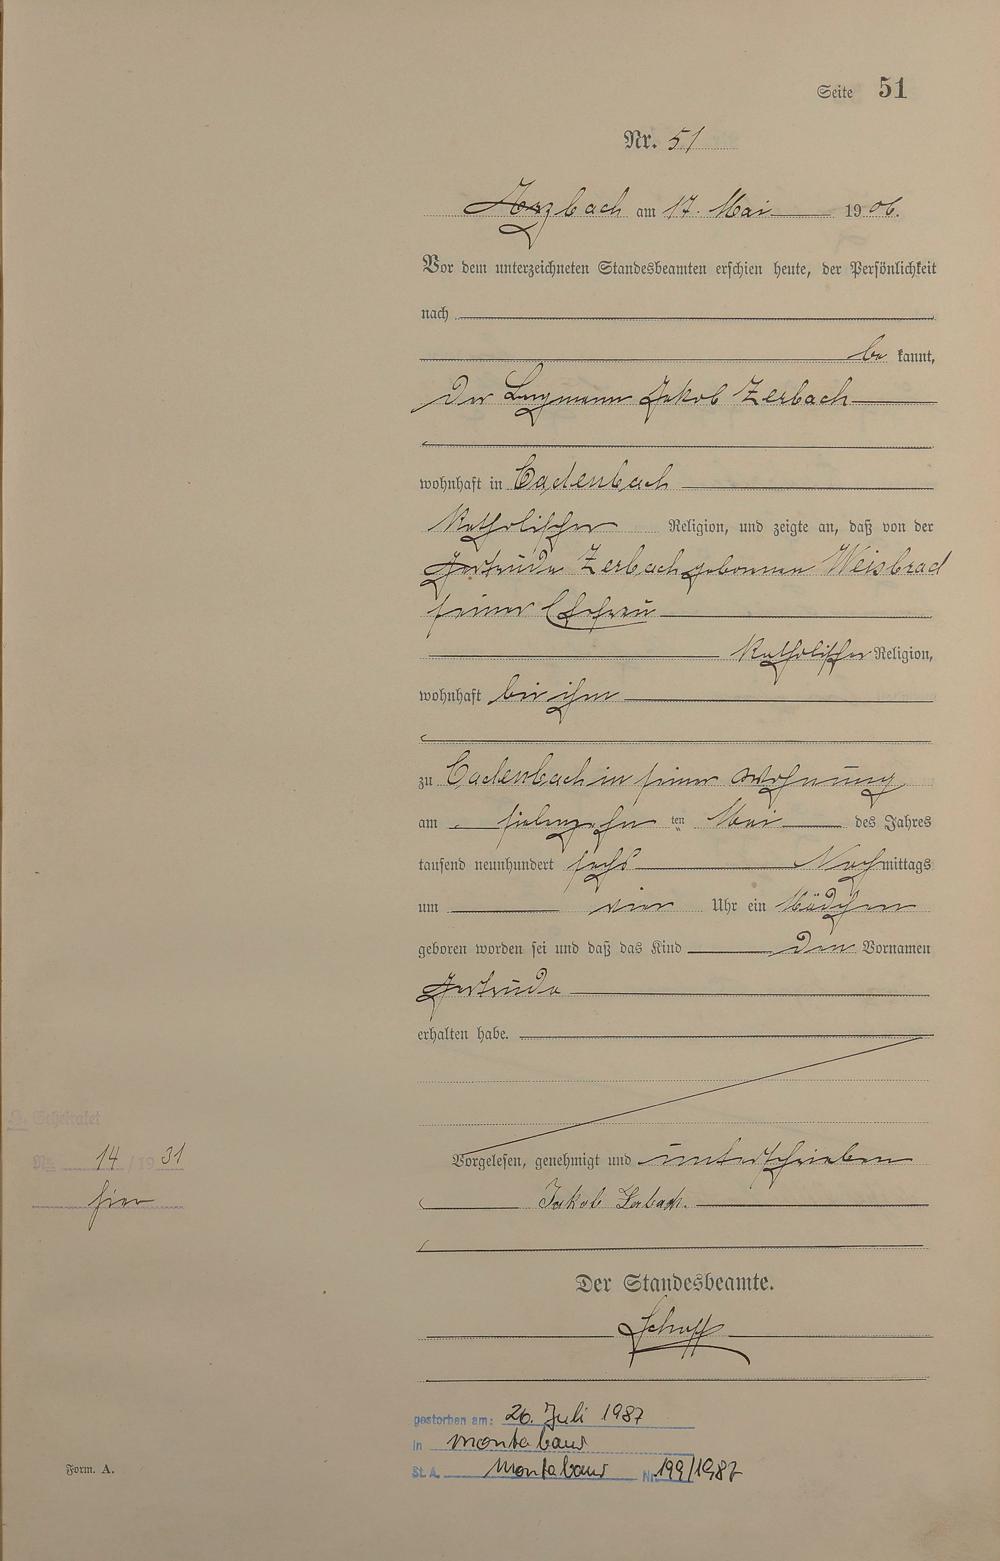 Seite 51
Nr. 51
Arzbach am 17. Mai 1906.
Vor dem unterzeichneten Standesbeamten erschien heute, der Persönlichkeit
nach
be kannt,
der Bergmann Jakob Zerbach
wohnhaft in Cadenbach
katholischer Religion, und zeigte an, daß von der
Gertrude Zerbach geborenen Weisbrad
seiner Ehefrau
katholischer Religion,
wohnhaft bei ihm
zu Cadenbach in seiner Wohnung
am siebenzehn ten Mai des Jahres
tausend neunhundert sechs Nachmittags
um vier Uhr ein Mädchen
geboren worden sei und daß das Kind den Vornamen
Gertrude
erhalten habe.
Vorgelesen, genehmigt und unterschrieben
Jakob Zerbach.
Der Standesbeamte.
gestorben am: 26. Juli 1987
in Montabaur
St. A. Montabaur Nr. 199/1987
Geheiratet
Nr. 14 / 1931
hier
Form. A.